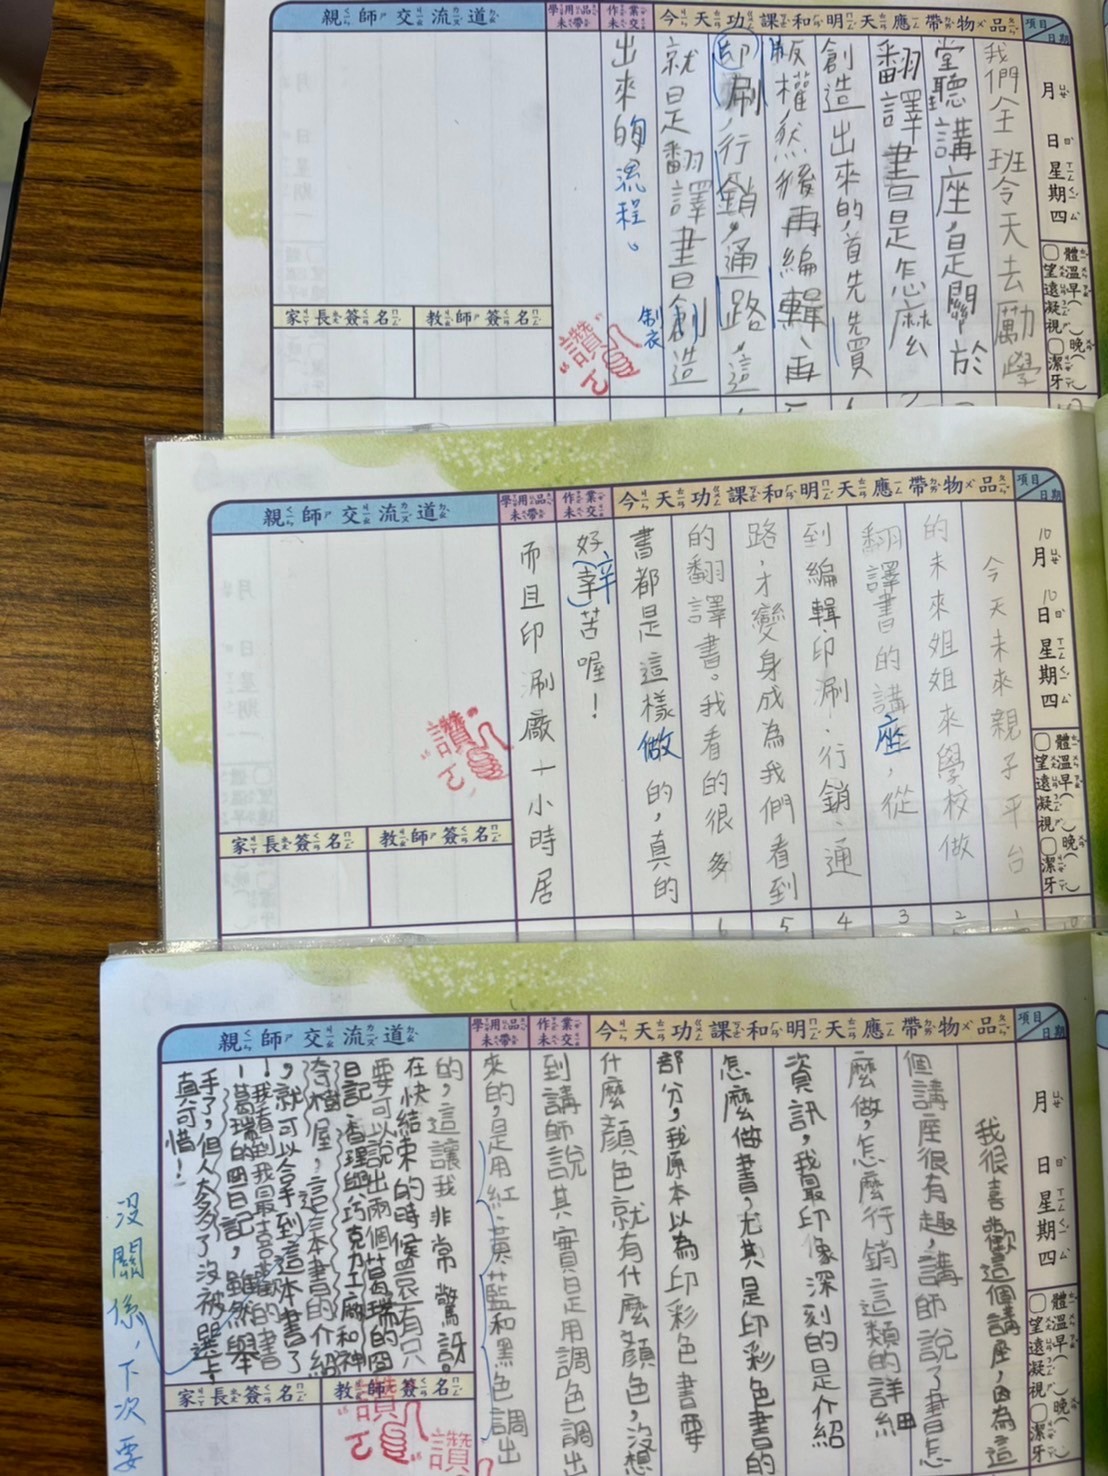 項目
日期
今天功課和明天應帶物品
作業未交
學用品未帶
親師交流道
月
日
星期四
體溫早( )晚( )
望遠凝視
潔牙
我們全班今天去勵學
堂聽講座,是關於
翻譯書是怎麼
創造出來的,首先先買
版權然後再編輯、再
印刷,行銷,通路,這
就是翻譯書創造
出來的流程。
制衣
讚
家長簽名
教師簽名
項目
日期
今天功課和明天應帶物品
作業未交
學用品未帶
親師交流道
10月
10日
星期四
體溫早( )晚( )
望遠凝視
潔牙
今天未來親子平台
的未來姐姐來學校做
翻譯書的講座,從
到編輯印刷、行銷、通
路,才變身成為我們看到
的翻譯書。我看的很多
書都是這樣做的,真的
好辛苦喔!
而且印刷廠一小時居
讚
家長簽名
教師簽名
1
2
3
4
5
6
項目
日期
今天功課和明天應帶物品
作業未交
學用品未帶
親師交流道
月
日
星期四
體溫早( )晚( )
望遠凝視
潔牙
我很喜歡這個講座,因為這
個講座很有趣,講師說了書怎
麼做,怎麼行銷這類的詳細
資訊,我最印像深刻的是介紹
怎麼做書,尤其是印彩色書的
部分,我原本以為印彩色書要
什麼顏色就有什麼顏色,沒想
到講師說其實是用調色調出
來的,是用紅、黃、藍和黑色調出
的,這讓我非常驚訝。
在快結束的時候還有只
要可以說出兩個葛瑞的囧
日記、查理與巧克力工廠和神
奇樹屋,這三本書的介紹
,就可以合手到這本書了
!我看到我最喜歡的書
!葛瑞的囧日記,雖然舉
手了,但人太多了沒被選上
真可惜!
家長簽名
教師簽名
讚
讚
沒關係,下次要